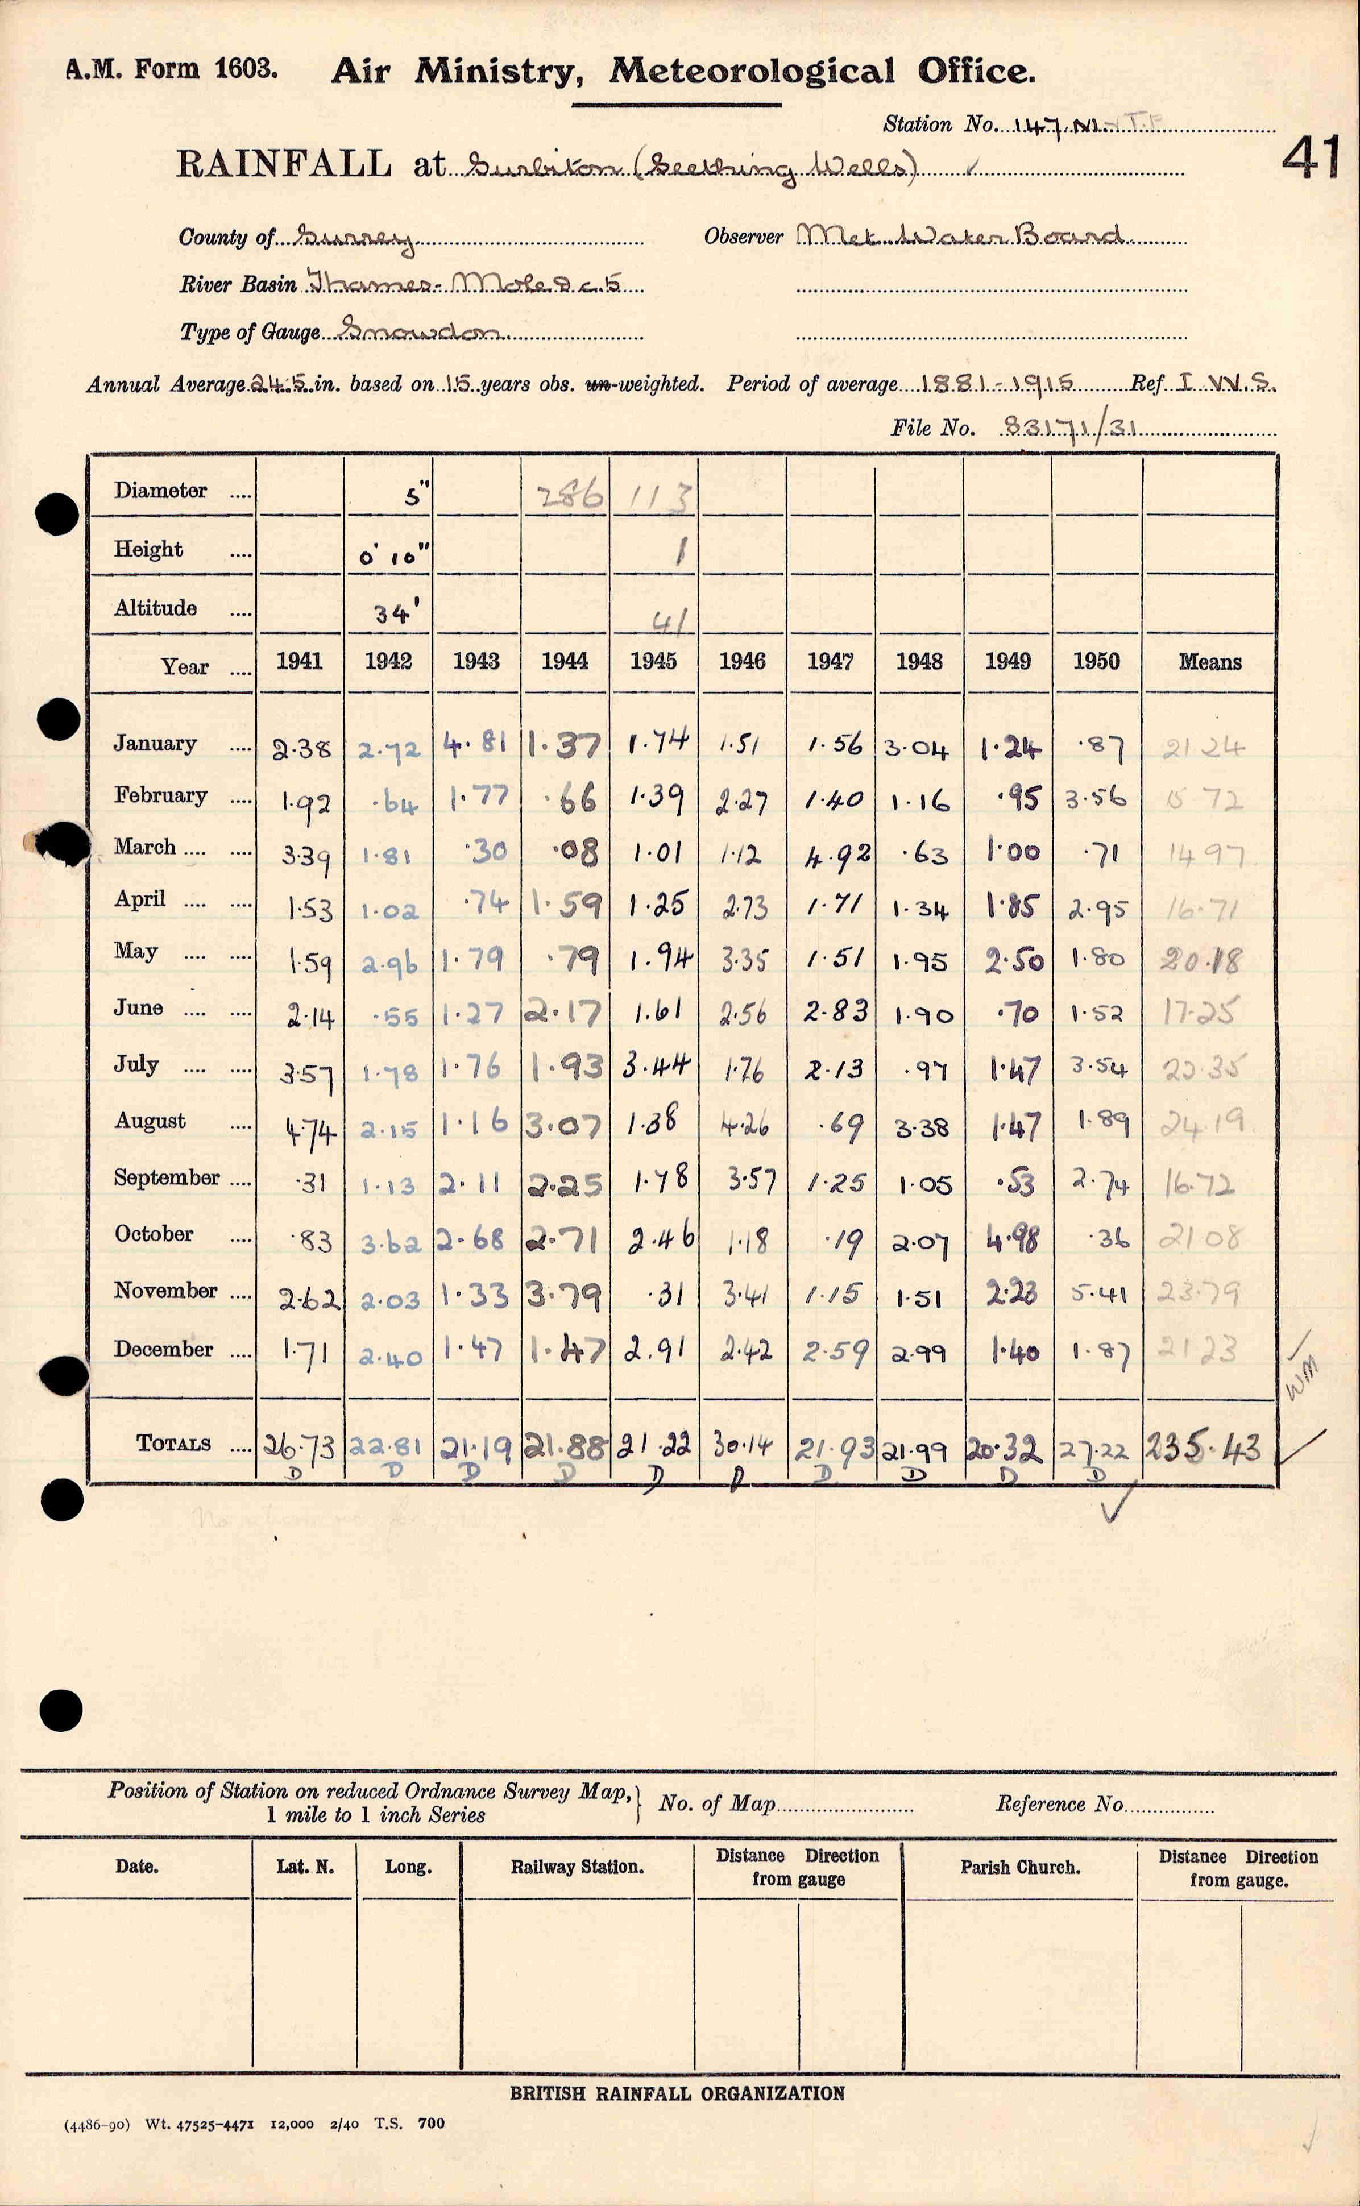 A.M. Form 1603. Air Ministry, Meteorological Office.
Station No. 147.M. T.F
41
RAINFALL at Surbiton (Seething Wells) ✓
County of Surrey Observer Met. Water Board
River Basin Thames - Mole &c. 5
Type of Gauge Snowdon
Annual Average 24.5 in. based on 15 years obs. un-weighted. Period of average 1881-1915 Ref. I.W.S.
File No. 83171/31
Diameter .... 5" 286 113
Height .... 0' 10" 1
Altitude .... 34' 41
Year .... 1941 1942 1943 1944 1945 1946 1947 1948 1949 1950 Means
January .... 2.38 2.72 4.81 1.37 1.74 1.51 1.56 3.04 1.24 .87 21.24
February .... 1.92 .64 1.77 .66 1.39 2.27 1.40 1.16 .95 3.56 15 72
March .... .... 3.39 1.81 .30 .08 1.01 1.12 4.92 .63 1.00 .71 14 97
April .... .... 1.53 1.02 .74 1.59 1.25 2.73 1.71 1.34 1.85 2.95 16.71
May .... .... 1.59 2.96 1.79 .79 1.94 3.35 1.51 1.95 2.50 1.80 20.18
June .... .... 2.14 .55 1.27 2.17 1.61 2.56 2.83 1.90 .70 1.52 17.25
July .... .... 3.57 1.78 1.76 1.93 3.44 1.76 2.13 .97 1.47 3.54 22.35
August .... 4.74 2.15 1.16 3.07 1.38 4.26 .69 3.38 1.47 1.89 24.19
September .... .31 1.13 2.11 2.25 1.78 3.57 1.25 1.05 .53 2.74 16.72
October .... .83 3.62 2.68 2.71 2.46 1.18 .19 2.07 4.98 .36 21 08
November .... 2.62 2.03 1.33 3.79 .31 3.41 1.15 1.51 2.23 5.41 23.79
December .... 1.71 2.40 1.47 1.47 2.91 2.42 2.59 2.99 1.40 1.87 21 23
WM
TOTALS .... 26.73 22.81 21.19 21.88 21.22 30.14 21.93 21.99 20.32 27.22 235.43
D D D D D D D D D D
Position of Station on reduced Ordnance Survey Map, } No. of Map Reference No.
1 mile to 1 inch Series
Date. Lat. N. Long. Railway Station. Distance Direction from gauge Parish Church. Distance Direction from gauge.
BRITISH RAINFALL ORGANIZATION
(4486-90) Wt. 47525-4471 12,000 2/40 T.S. 700